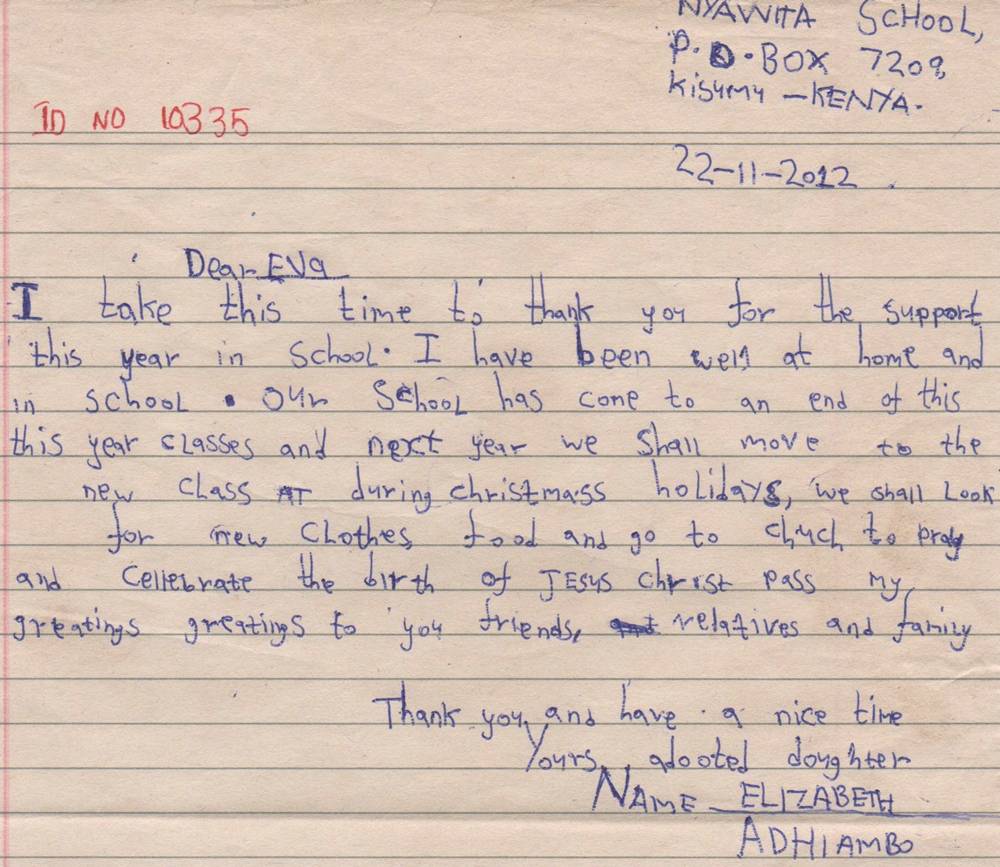 NYAWITA SCHOOL,
P.O.BOX 7209,
Kisumu -KENYA.
ID NO 10335
22-11-2012
Dear EVa
I take this time to thank you for the support
this year in school. I have been well at home and
in school. Our School has come to an end of this
this year classes and next year we shall move to the
new class AT during christmass holidays, we shall Look
for new clothes, food and go to chuch to pray
and cellebrate the birth of Jesus christ pass my
greatings greatings to you friends, relatives and family
Thank you, and have a nice time
Yours, adooted doughter
NAME ELIZABETH
ADHIAMBO